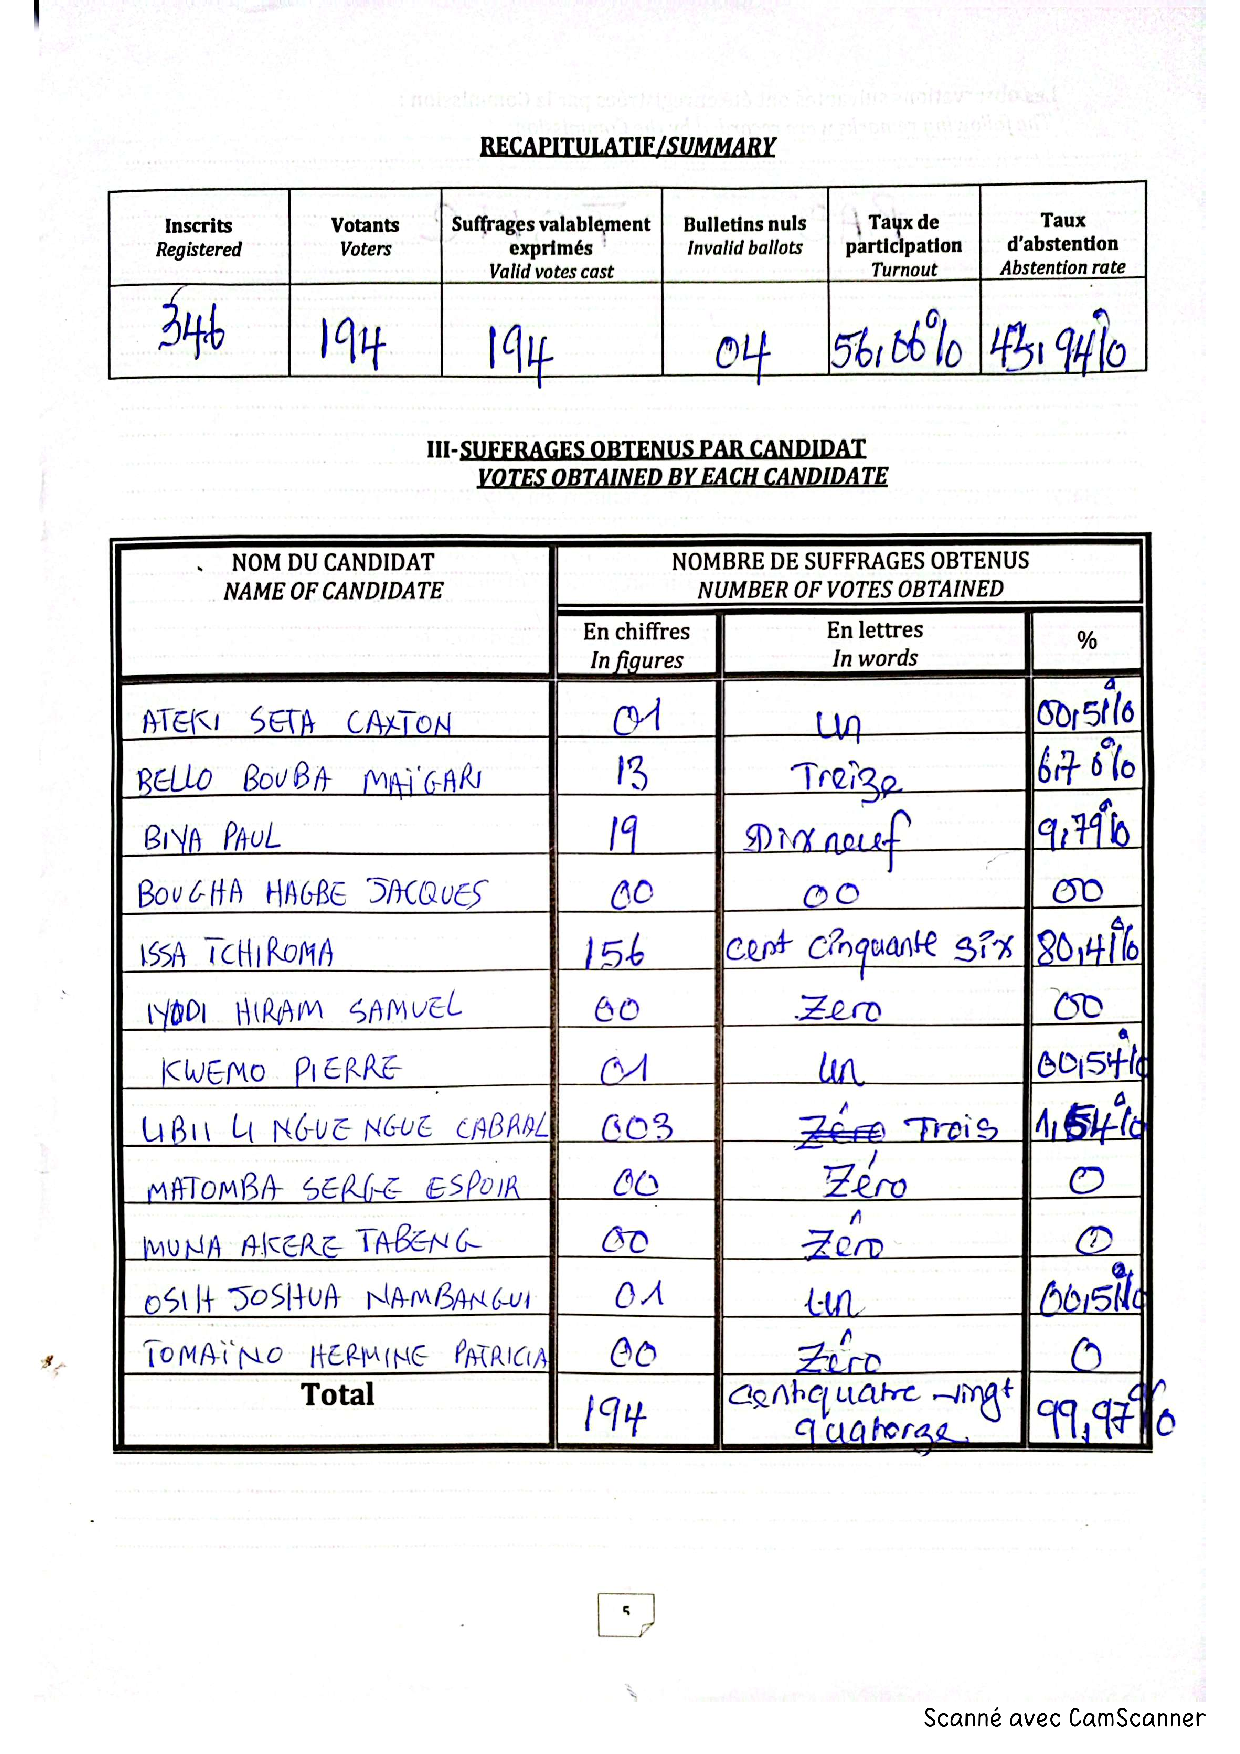 RECAPITULATIF/SUMMARY
Inscrits
Registered
Votants
Voters
Suffrages valablement
exprimés
Valid votes cast
Bulletins nuls
Invalid ballots
Taux de
participation
Turnout
Taux
d'abstention
Abstention rate
346
194
194
04
56,06%
43,94%
III-SUFFRAGES OBTENUS PAR CANDIDAT
VOTES OBTAINED BY EACH CANDIDATE
NOM DU CANDIDAT
NAME OF CANDIDATE
NOMBRE DE SUFFRAGES OBTENUS
NUMBER OF VOTES OBTAINED
En chiffres
In figures
En lettres
In words
%
ATEKI SETA CAXTON 01 un 00,51%
BELLO BOUBA MAÏGARI 13 Treize 6,70%
BIYA PAUL 19 Dix neuf 9,79%
BOUGHA HAGBE JACQUES 00 00 00
ISSA TCHIROMA 156 cent cinquante six 80,41%
IYODI HIRAM SAMUEL 00 Zero 00
KWEMO PIERRE 01 un 00,51%
LIBII LI NGUE NGUE CABRAL 003 Zéro Trois 1,54%
MATOMBA SERGE ESPOIR 00 Zéro 0
MUNA AKERE TABENG 00 Zéro 0
OSIH JOSHUA NAMBANGUI 01 un 00,51%
TOMAÏNO HERMINE PATRICIA 00 Zéro 0
Total 194 Cent quatre vingt
quatorze 99,97%
5
Scanné avec CamScanner